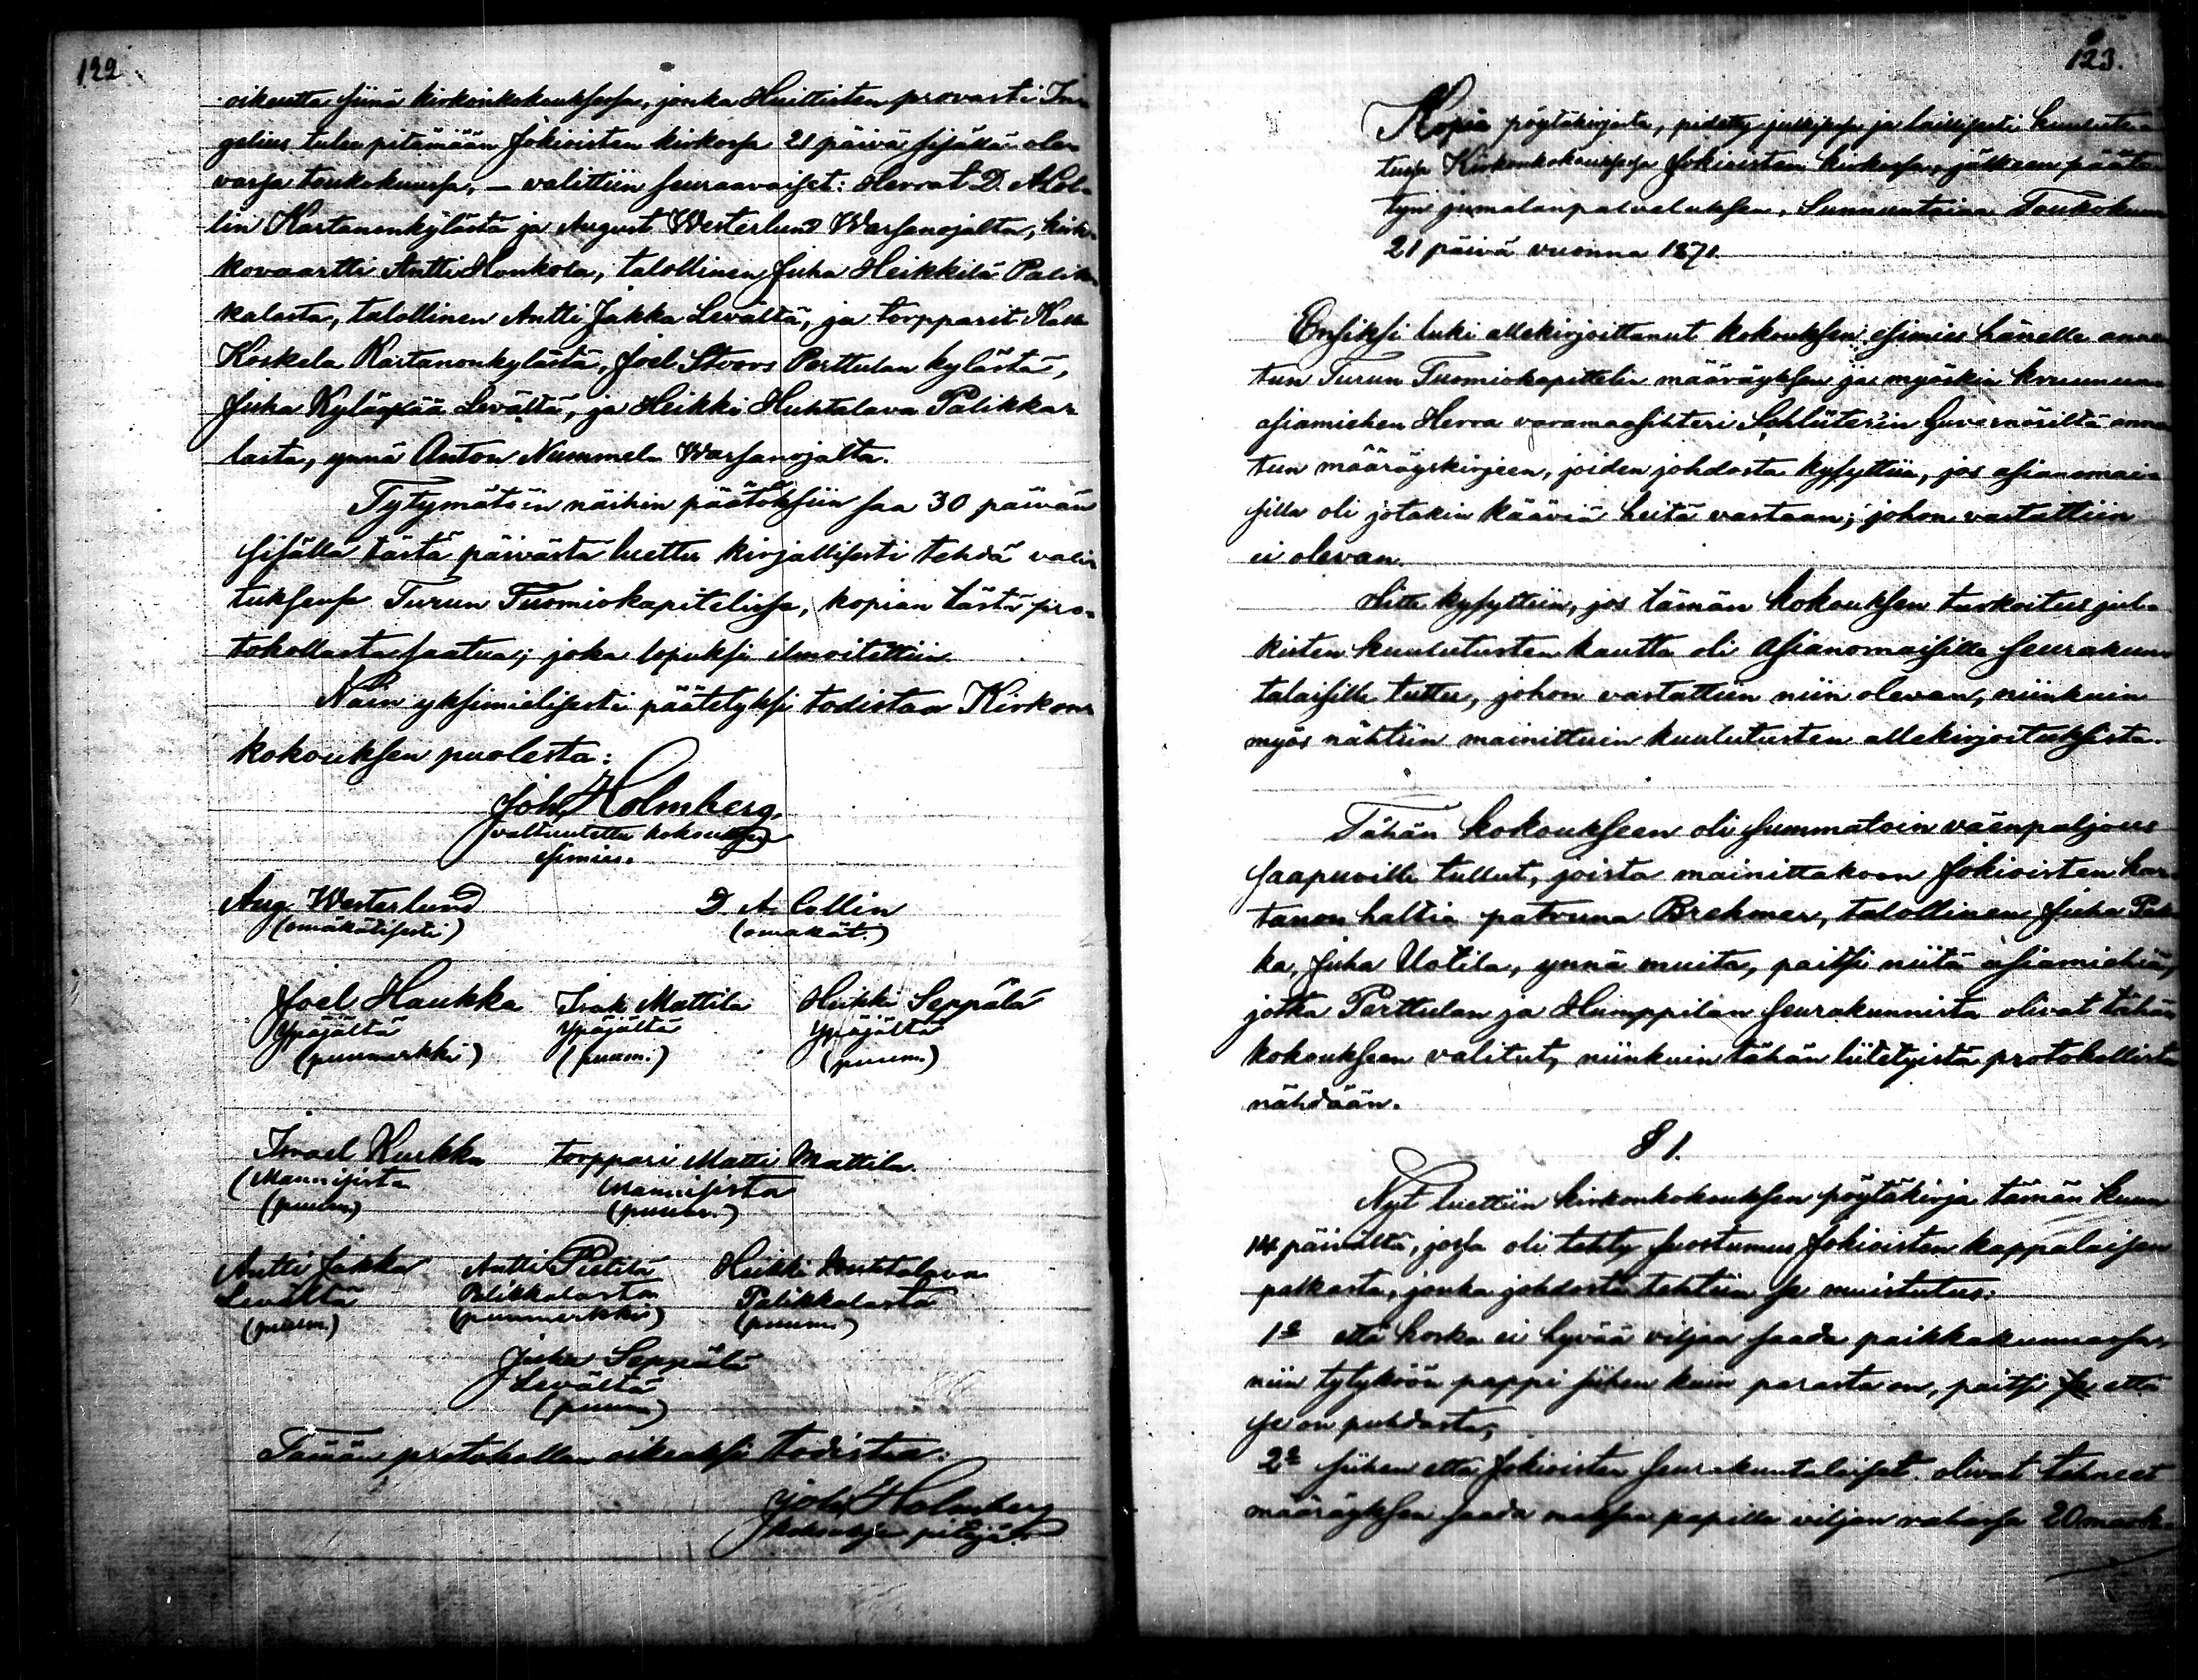 122
oikeutta siinä kirkonkokouksessa, jonka Huittisten provasti In-
gelius tulee pitämään Jokioisten kirkossa 21 päivä sisällä ole-
vassa toukokuussa, — valittiin seuraavaiset: Herrat D. A. Col-
lin Kartanonkylästä ja August Westerlund Warsanojalta, kirk-
kovaartti Antti Honkola, talollinen Juha Heikkilä Palik-
kalasta, talollinen Antti Jakka Levältä, ja torpparit Kalle
Koskela Kartanonkylästä, Joel Stoors Perttulan kylästä,
Juha Kylänpää Levältä, ja Heikki Huhtalava Palikka-
lasta, ynnä Anton Nummela Warsanojalta.
Tytymätöin näihin päätöksiin saa 30 päivän
sisällä tästä päivästä luettu kirjallisesti tehdä vali-
tuksensa Turun Tuomiokapitelissa, kopian tästä pro-
tokollasta saatua; joka lopuksi ilmoitettiin.
Näin yksimielisesti päätetyksi todistaa Kirkon-
kokouksen puolesta:
Joh. Holmberg.
valtuutettu kokouksen
esimies.
Aug. Westerlund D. A. Collin
(omakätisesti) (omakät.)
Joel Haukka Isak Mattila Heikki Seppälä
Ypäjältä Ypäjältä Ypäjältä
(puumerkki) (puum.) (puum.)
Israel Kurkka torppari Matti Mattila.
(Mannisista Mannisista
(puum.) (puum.)
Antti Jakka Antti Pietilä Heikki Huhtalava
Levältä Palikkalasta Palikkalasta
(puum.) (puumerkki) (puum.)
Juha Seppälä
Levältä
(puum.)
Tämän protokollan oikeaksi todistaa:
Joh. Holmberg
kokouksen pitäjä.
123.
Kopia pöytäkirjasta, pidetty julkisessa ja laillisesti kuulute-
tussa Kirkonkokouksessa Jokioisten kirkossa, jälkeen pääte-
tyn jumalanpalveluksen, Sunnuntaina Toukokuun
21 päivä vuonna 1871.
Ensiksi luki allekirjoittanut kokouksen esimies hänelle annet
tun Turun Tuomiokapittelin määräyksen ja myöskin kruunun
asiamiehen Herra varamaasihteri Schlüter'in Guvernöriltä annet
tun määräyskirjeen, joiden johdosta kysyttiin, jos asianomai-
silla oli jotakin jääviä heitä vastaan; johon vastattiin
ei olevan.
Sitte kysyttiin, jos tämän kokouksen tarkoitus jul-
kisten kuulutusten kautta oli asianomaisille seurakun-
talaisille tuttu, johon vastattiin niin olevan, niinkuin
myös nähtiin mainittuin kuulutusten allekirjoituksista.
Tähän kokoukseen oli summatoin väenpaljous
saapuville tullut, joista mainittakoon Jokioisten kar-
tanon haltia patruuna Brehmer, talollinen Juha Pak-
ka, Juha Uotila, ynnä muita, paitsi niitä asiamiehiä,
jotka Perttulan ja Humppilan seurakunnista olivat tähän
kokoukseen valitut, niinkuin tähän liitetyistä protokollista
nähdään.
§ 1.
Nyt luettiin kirkonkokouksen pöytäkirja tämän kuun
14 päivältä, jossa oli tehty suostumus Jokioisten kappalaisen
palkasta, jonka johdosta tehtiin se muistutus:
1:o että koska ei hyvää viljaa saada paikkakunnassa,
niin tytyköön pappi siihen kuin parasta on, paitsi se että
se on puhdasta,
2:o siihen että Jokioisten seurakuntalaiset olivat tehneet
määräyksen saada maksaa papille viljan rahassa 20 mark-